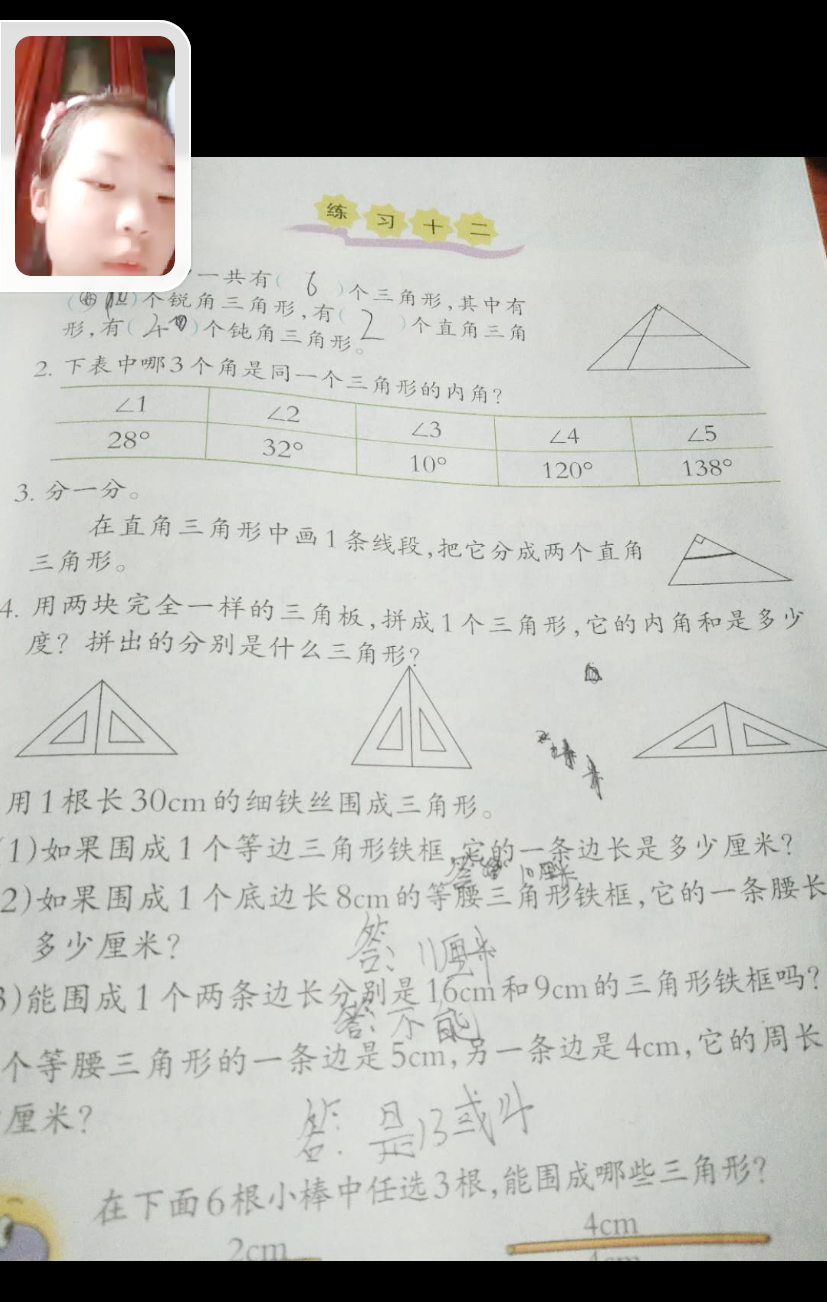 练习十二
一共有( 6 )个三角形,其中有
( )个锐角三角形,有( 2 )个直角三角
形,有( )个钝角三角形。
2. 下表中哪3个角是同一个三角形的内角?
∠1 ∠2 ∠3 ∠4 ∠5
28° 32° 10° 120° 138°
3. 分一分。
在直角三角形中画1条线段,把它分成两个直角
三角形。
4. 用两块完全一样的三角板,拼成1个三角形,它的内角和是多少
度?拼出的分别是什么三角形?
用1根长30cm的细铁丝围成三角形。
1)如果围成1个等边三角形铁框,它的一条边长是多少厘米?
答 10厘米
2)如果围成1个底边长8cm的等腰三角形铁框,它的一条腰长
多少厘米?
答:11厘米
3)能围成1个两条边长分别是16cm和9cm的三角形铁框吗?
答:不能
个等腰三角形的一条边是5cm,另一条边是4cm,它的周长
厘米?
答:是13或14
在下面6根小棒中任选3根,能围成哪些三角形?
2cm 4cm
4cm